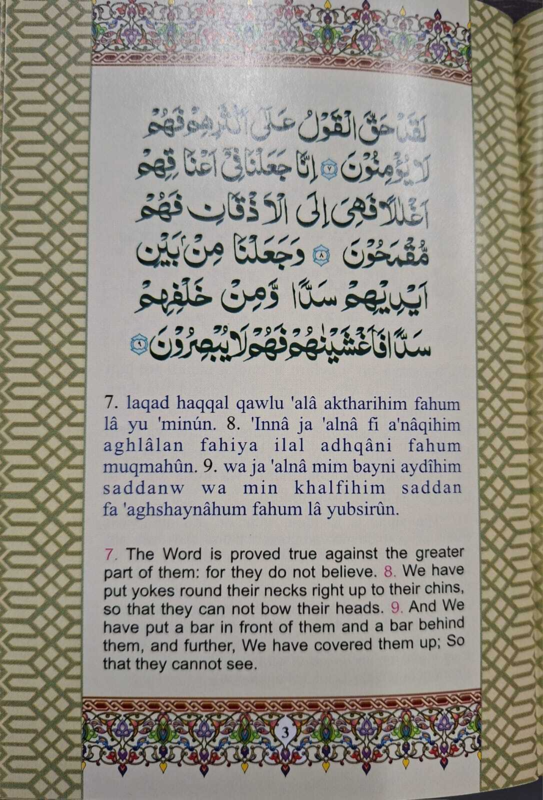 لَقَدْ حَقَّ الْقَوْلُ عَلٰٓى اَكْثَرِهِمْ فَهُمْ
لَا يُؤْمِنُوْنَ ﴿٧﴾ اِنَّا جَعَلْنَا فِيْٓ اَعْنَا قِهِمْ
اَغْلٰلًا فَهِىَ اِلَى الْاَذْقَانِ فَهُمْ
مُّقْمَحُوْنَ ﴿٨﴾ وَجَعَلْنَا مِنْۢ بَيْنِ
اَيْدِيْهِمْ سَدًّا وَّمِنْ خَلْفِهِمْ
سَدًّا فَاَغْشَيْنٰهُمْ فَهُمْ لَا يُبْصِرُوْنَ ﴿٩﴾
7. laqad haqqal qawlu 'alâ aktharihim fahum
lâ yu 'minún. 8. 'Innâ ja 'alnâ fi a'nâqihim
aghlâlan fahiya ilal adhqâni fahum
muqmahûn. 9. wa ja 'alnâ mim bayni aydîhim
saddanw wa min khalfihim saddan
fa 'aghshaynâhum fahum lâ yubsirûn.
7. The Word is proved true against the greater
part of them: for they do not believe. 8. We have
put yokes round their necks right up to their chins,
so that they can not bow their heads. 9. And We
have put a bar in front of them and a bar behind
them, and further, We have covered them up; So
that they cannot see.
3